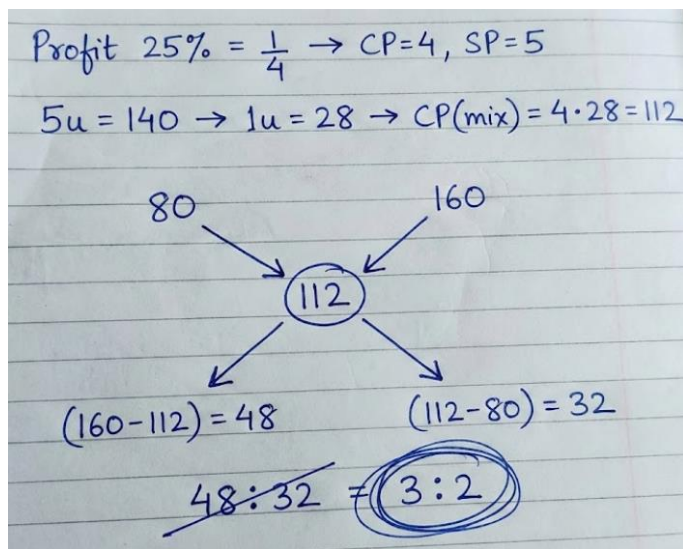 Profit 25% = 1/4 → CP=4, SP=5
5u = 140 → 1u = 28 → CP(mix) = 4·28=112
80 160
112
(160-112) = 48 (112-80) = 32
48:32 = 3:2